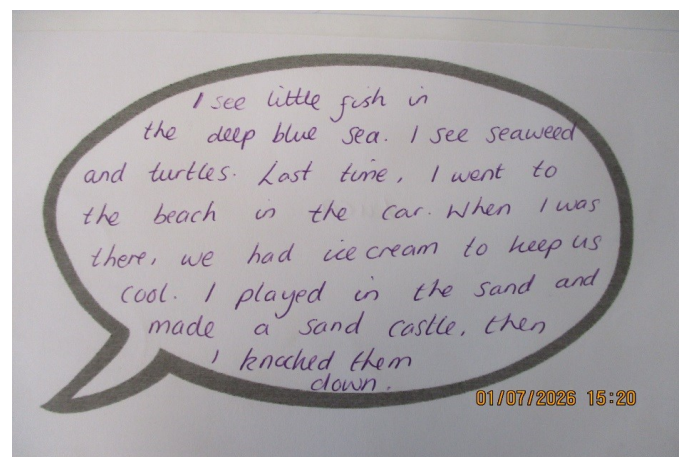 I see little fish in
the deep blue sea. I see seaweed
and turtles. Last time, I went to
the beach in the car. When I was
there, we had ice cream to keep us
cool. I played in the sand and
made a sand castle, then
I knocked them
down.
01/07/2026 15:20